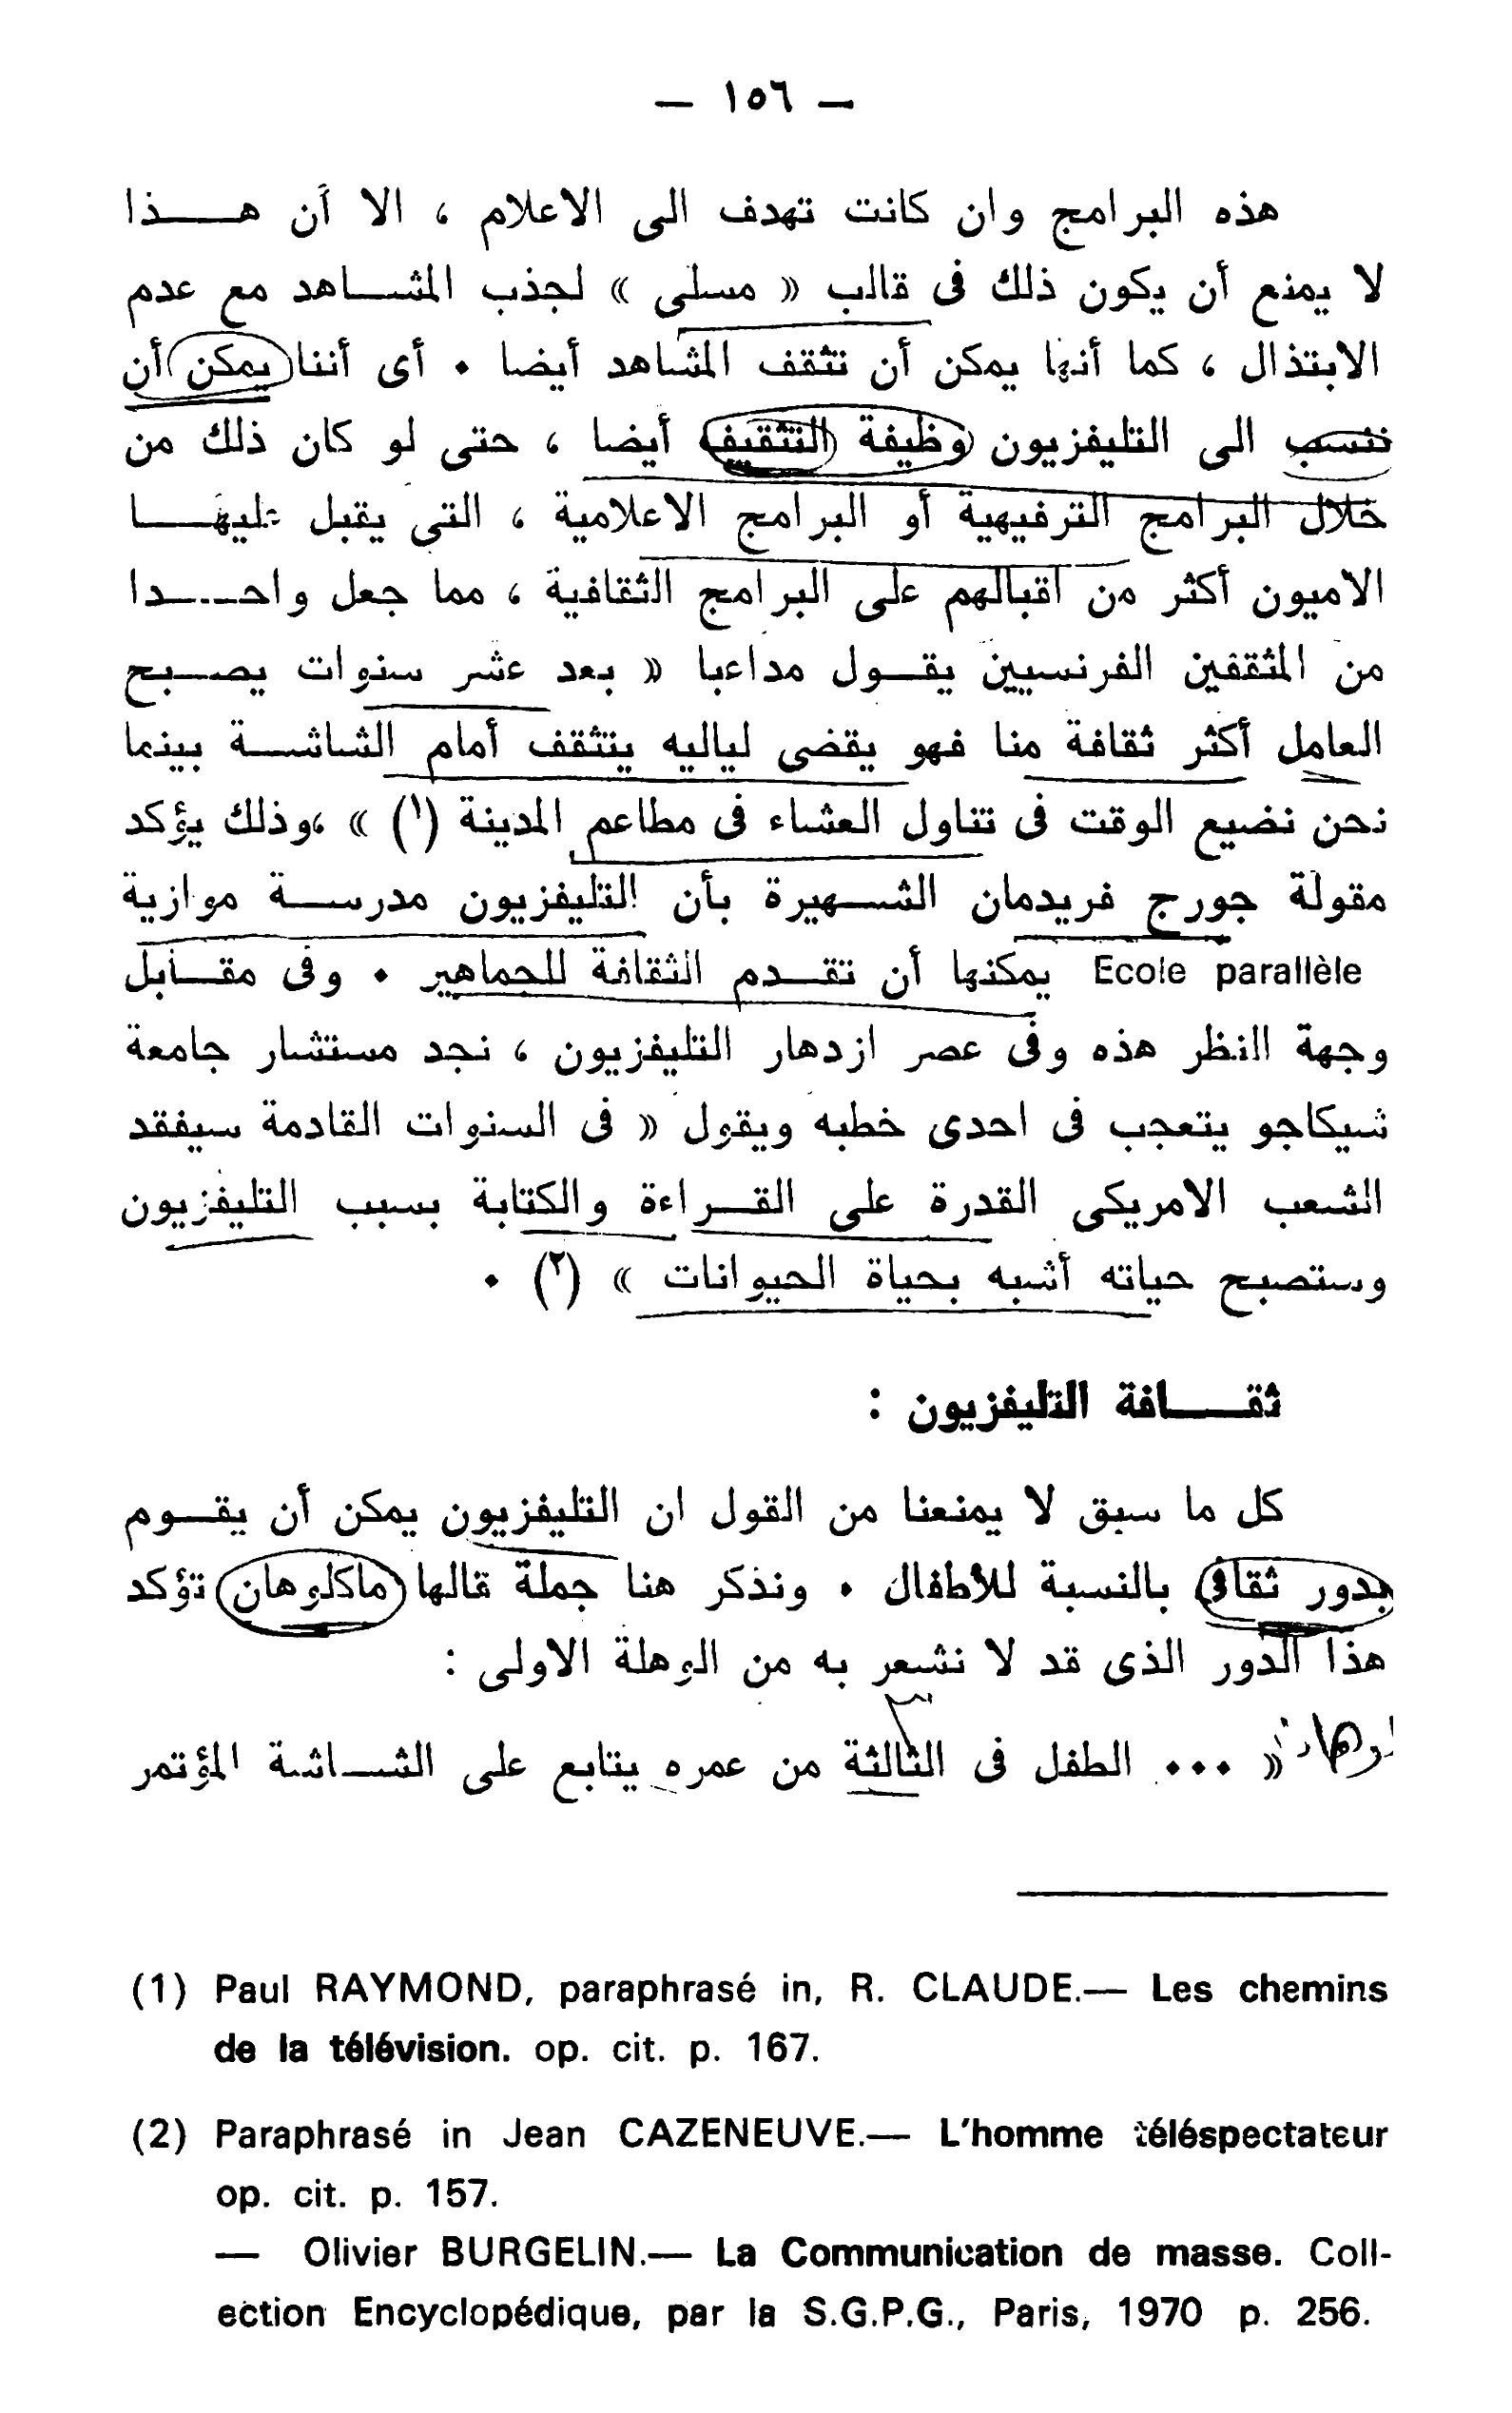 — ١٥٦ —
هذه البرامج وان كانت تهدف الى الاعلام ، الا أن هـــذا
لا يمنع أن يكون ذلك فى قالب « مسلى » لجذب المشـاهد مع عدم
الابتذال ، كما أنها يمكن أن تثقف المشاهد أيضا . أى أننا يمكن أن
ننسب الى التليفزيون وظيفة التثقيف أيضا ، حتى لو كان ذلك من
خلال البرامج الترفيهية أو البرامج الاعلامية ، التى يقبل عليهــا
الاميون أكثر من اقبالهم على البرامج الثقافية ، مما جعل واحــدا
من المثقفين الفرنسيين يقـول مداعبا « بعد عشر سنوات يصـبح
العامل أكثر ثقافة منا فهو يقضى لياليه يتثقف أمام الشاشـة بينما
نحن نضيع الوقت فى تناول العشاء فى مطاعم المدينة (١) » ، وذلك يؤكد
مقولة جورج فريدمان الشـهيرة بأن التليفزيون مدرسـة موازية
Ecole parallèle يمكنها أن تقـدم الثقافة للجماهير . وفى مقـابل
وجهة النظر هذه وفى عصر ازدهار التليفزيون ، نجد مستشار جامعة
شيكاجو يتعجب فى احدى خطبه ويقول « فى السنوات القادمة سيفقد
الشعب الامريكى القدرة على القـراءة والكتابة بسبب التليفزيون
وستصبح حياته أشبه بحياة الحيوانات » (٢) .
ثقـــافة التليفزيون :
كل ما سبق لا يمنعنا من القول ان التليفزيون يمكن أن يقـوم
بدور ثقافى بالنسبة للأطفال . ونذكر هنا جملة قالها ماكلوهان تؤكد
هذا الدور الذى قد لا نشعر به من الوهلة الاولى :
« ... الطفل فى الثالثة من عمره يتابع على الشـاشة المؤتمر
(1) Paul RAYMOND, paraphrasé in, R. CLAUDE.— Les chemins
de la télévision. op. cit. p. 167.
(2) Paraphrasé in Jean CAZENEUVE.— L'homme téléspectateur
op. cit. p. 157.
— Olivier BURGELIN.— La Communication de masse. Coll-
ection Encyclopédique, par la S.G.P.G., Paris, 1970 p. 256.